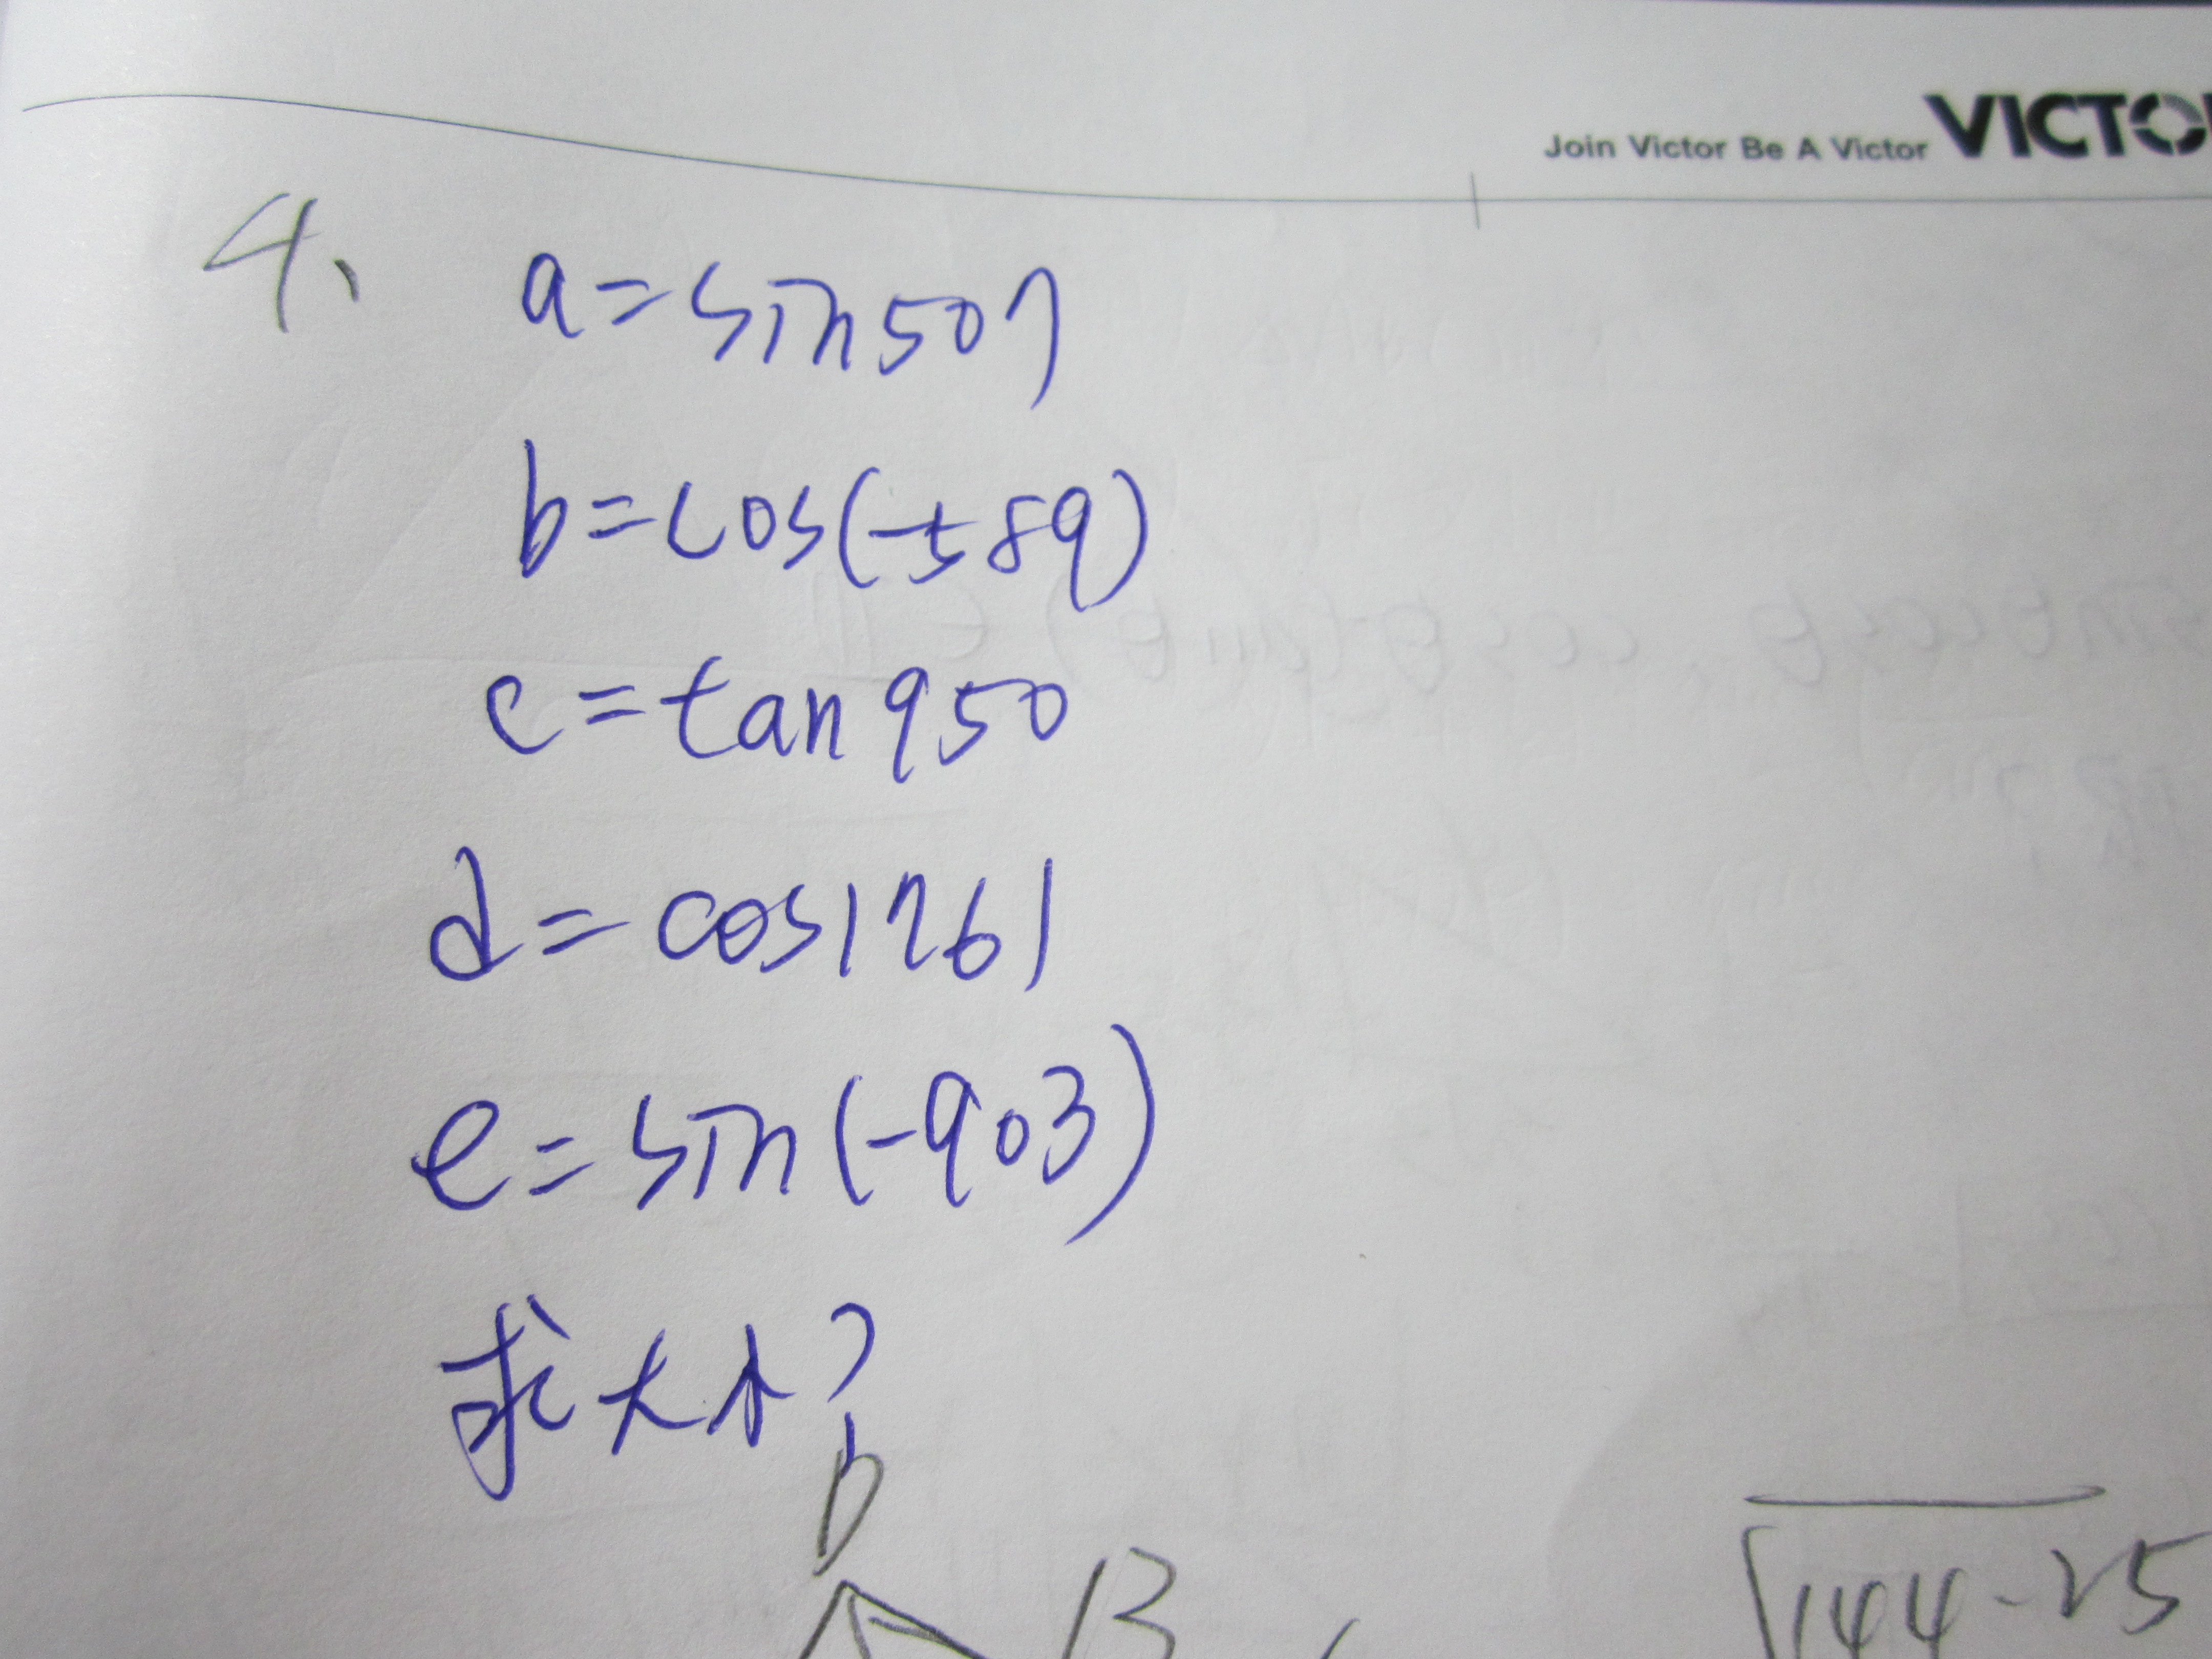 Join Victor Be A Victor VICTO
4、
a=sin507
b=cos(-589)
c=tan950
d=cos1761
e=sin(-903)
求大小?
D
13
√144-25